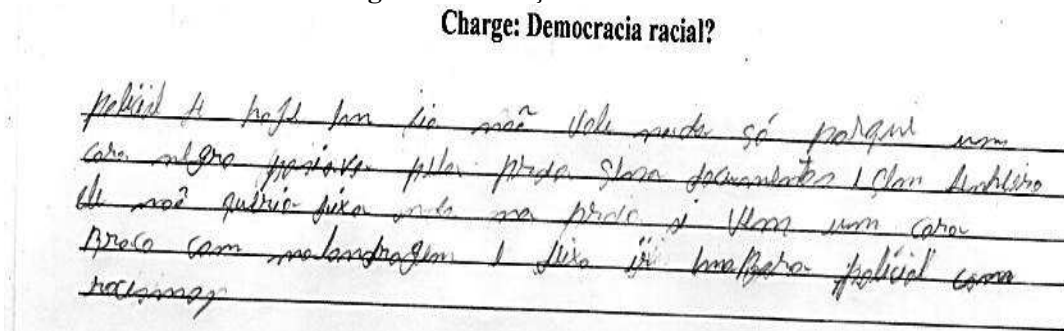 Charge: Democracia racial?
policial hoje em dia não vale nada só porque um
cara negro passava pela praia documentos e dinheiro
ele não queria na praia si vem um cara
Braco com malandragem e dexa ir policial com
racismo